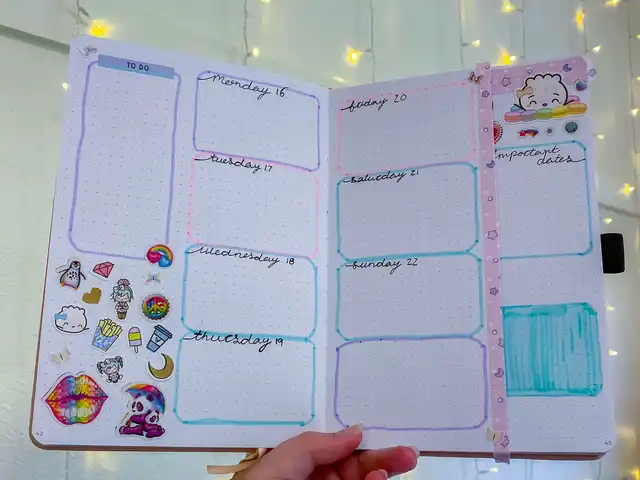 TO DO
Monday 16
tuesday 17
Wednesday 18
thursday 19
friday 20
saturday 21
sunday 22
important
dates
42
43